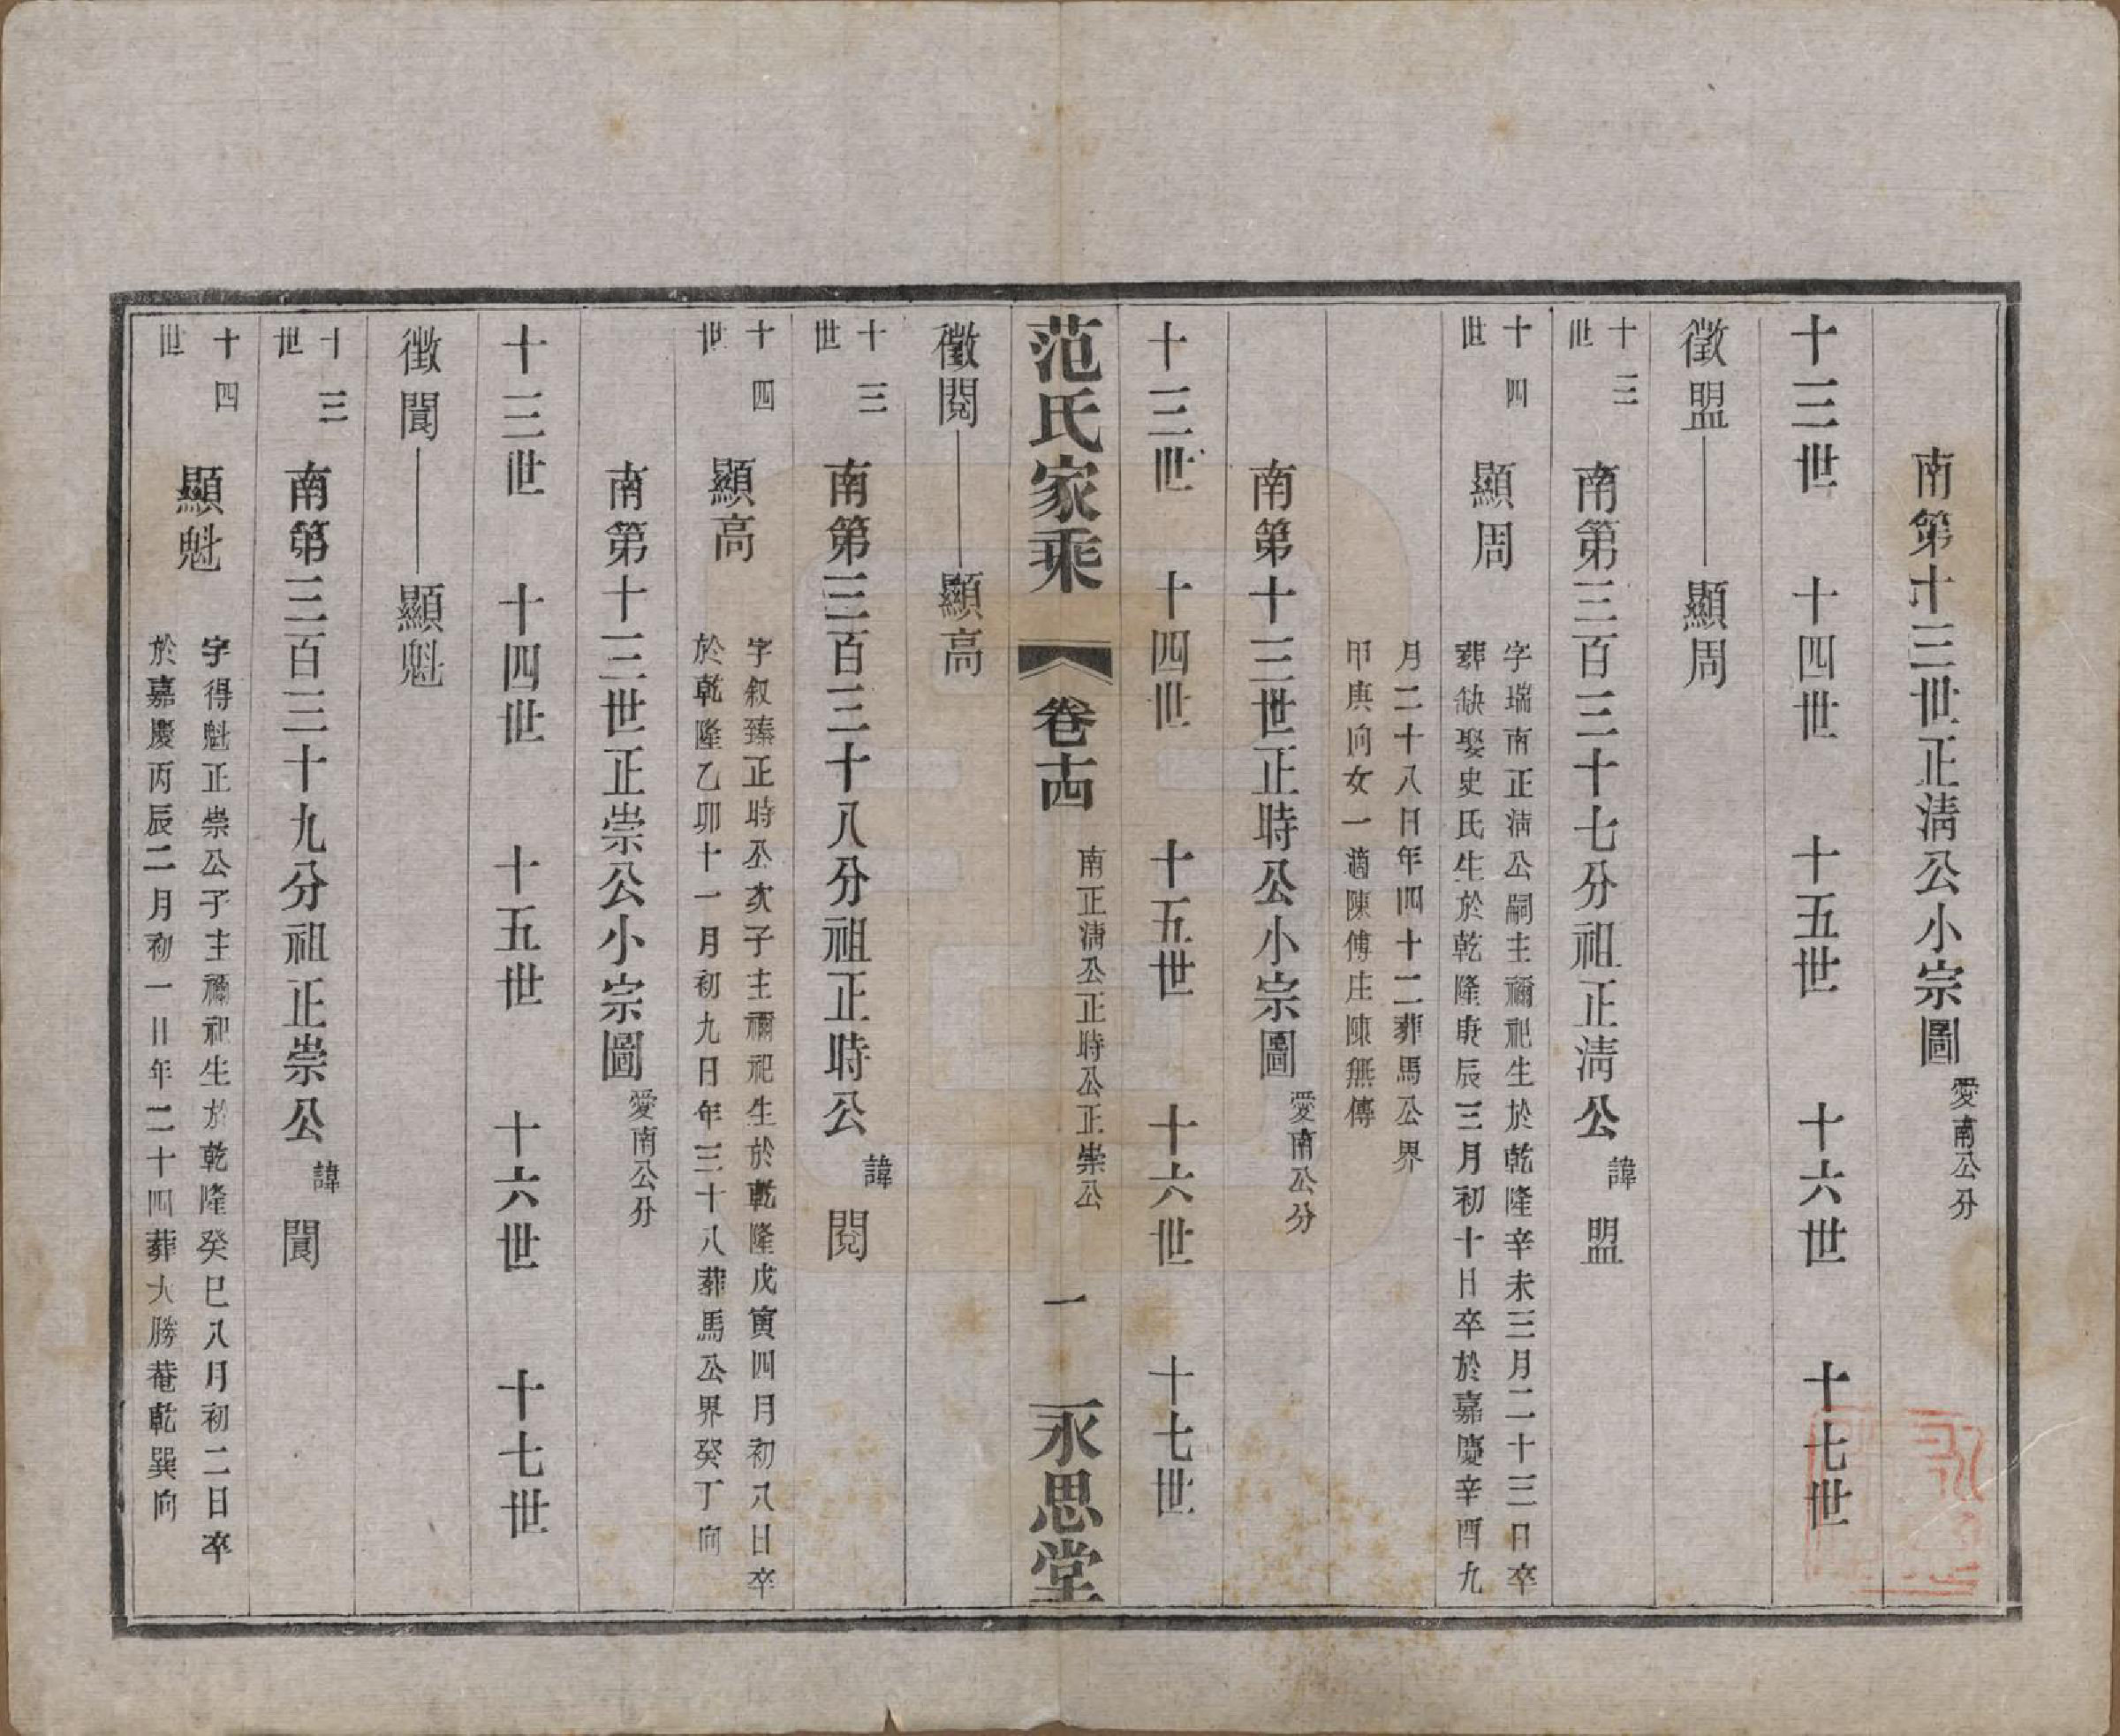 南第十三世正淸公小宗圖 愛南公分
十三世 十四世 十五世 十六世 十七世
徵盟 顯周
十三世 南第三百三十七分祖正淸公 諱盟
十四世 顯周 字瑞南正淸公嗣主禰祀生於乾隆辛未三月二十三日卒
葬缺娶史氏生於乾隆庚辰三月初十日卒於嘉慶辛酉九
月二十八日年四十二葬馬公界
甲庚向女一適陳傅庄陳無傳
南第十三世正時公小宗圖 愛南公分
十三世 十四世 十五世 十六世 十七世
范氏家乘 卷十四 南正淸公正時公正崇公 一 永思堂
徵閱 顯高
十三世 南第三百三十八分祖正時公 諱閱
十四世 顯高 字叙臻正時公次子主禰祀生於乾隆戊寅四月初八日卒
於乾隆乙卯十一月初九日年三十八葬馬公界癸丁向
南第十三世正崇公小宗圖 愛南公分
十三世 十四世 十五世 十六世 十七世
徵閬 顯魁
十三世 南第三百三十九分祖正崇公 諱閬
十四世 顯魁 字得魁正崇公子主禰祀生於乾隆癸巳八月初二日卒
於嘉慶丙辰二月初一日年二十四葬大勝菴乾巽向